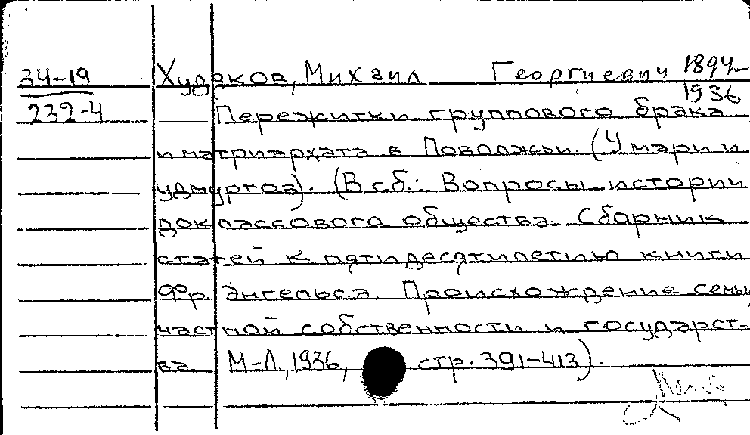 34-19 Худяков, Михаил Георгиевич 1894-
1936
232-4 Пережитки группового брака
и матриархата в Поволжьи. (У мари и
удмуртов). (В сб.: Вопросы истории
доклассового общества. Сборник
статей к пятидесятилетию книги
Фр. Энгельса. Происхождение семьи
частной собственности и государст-
ва М-Л, 1936, стр. 391-413).